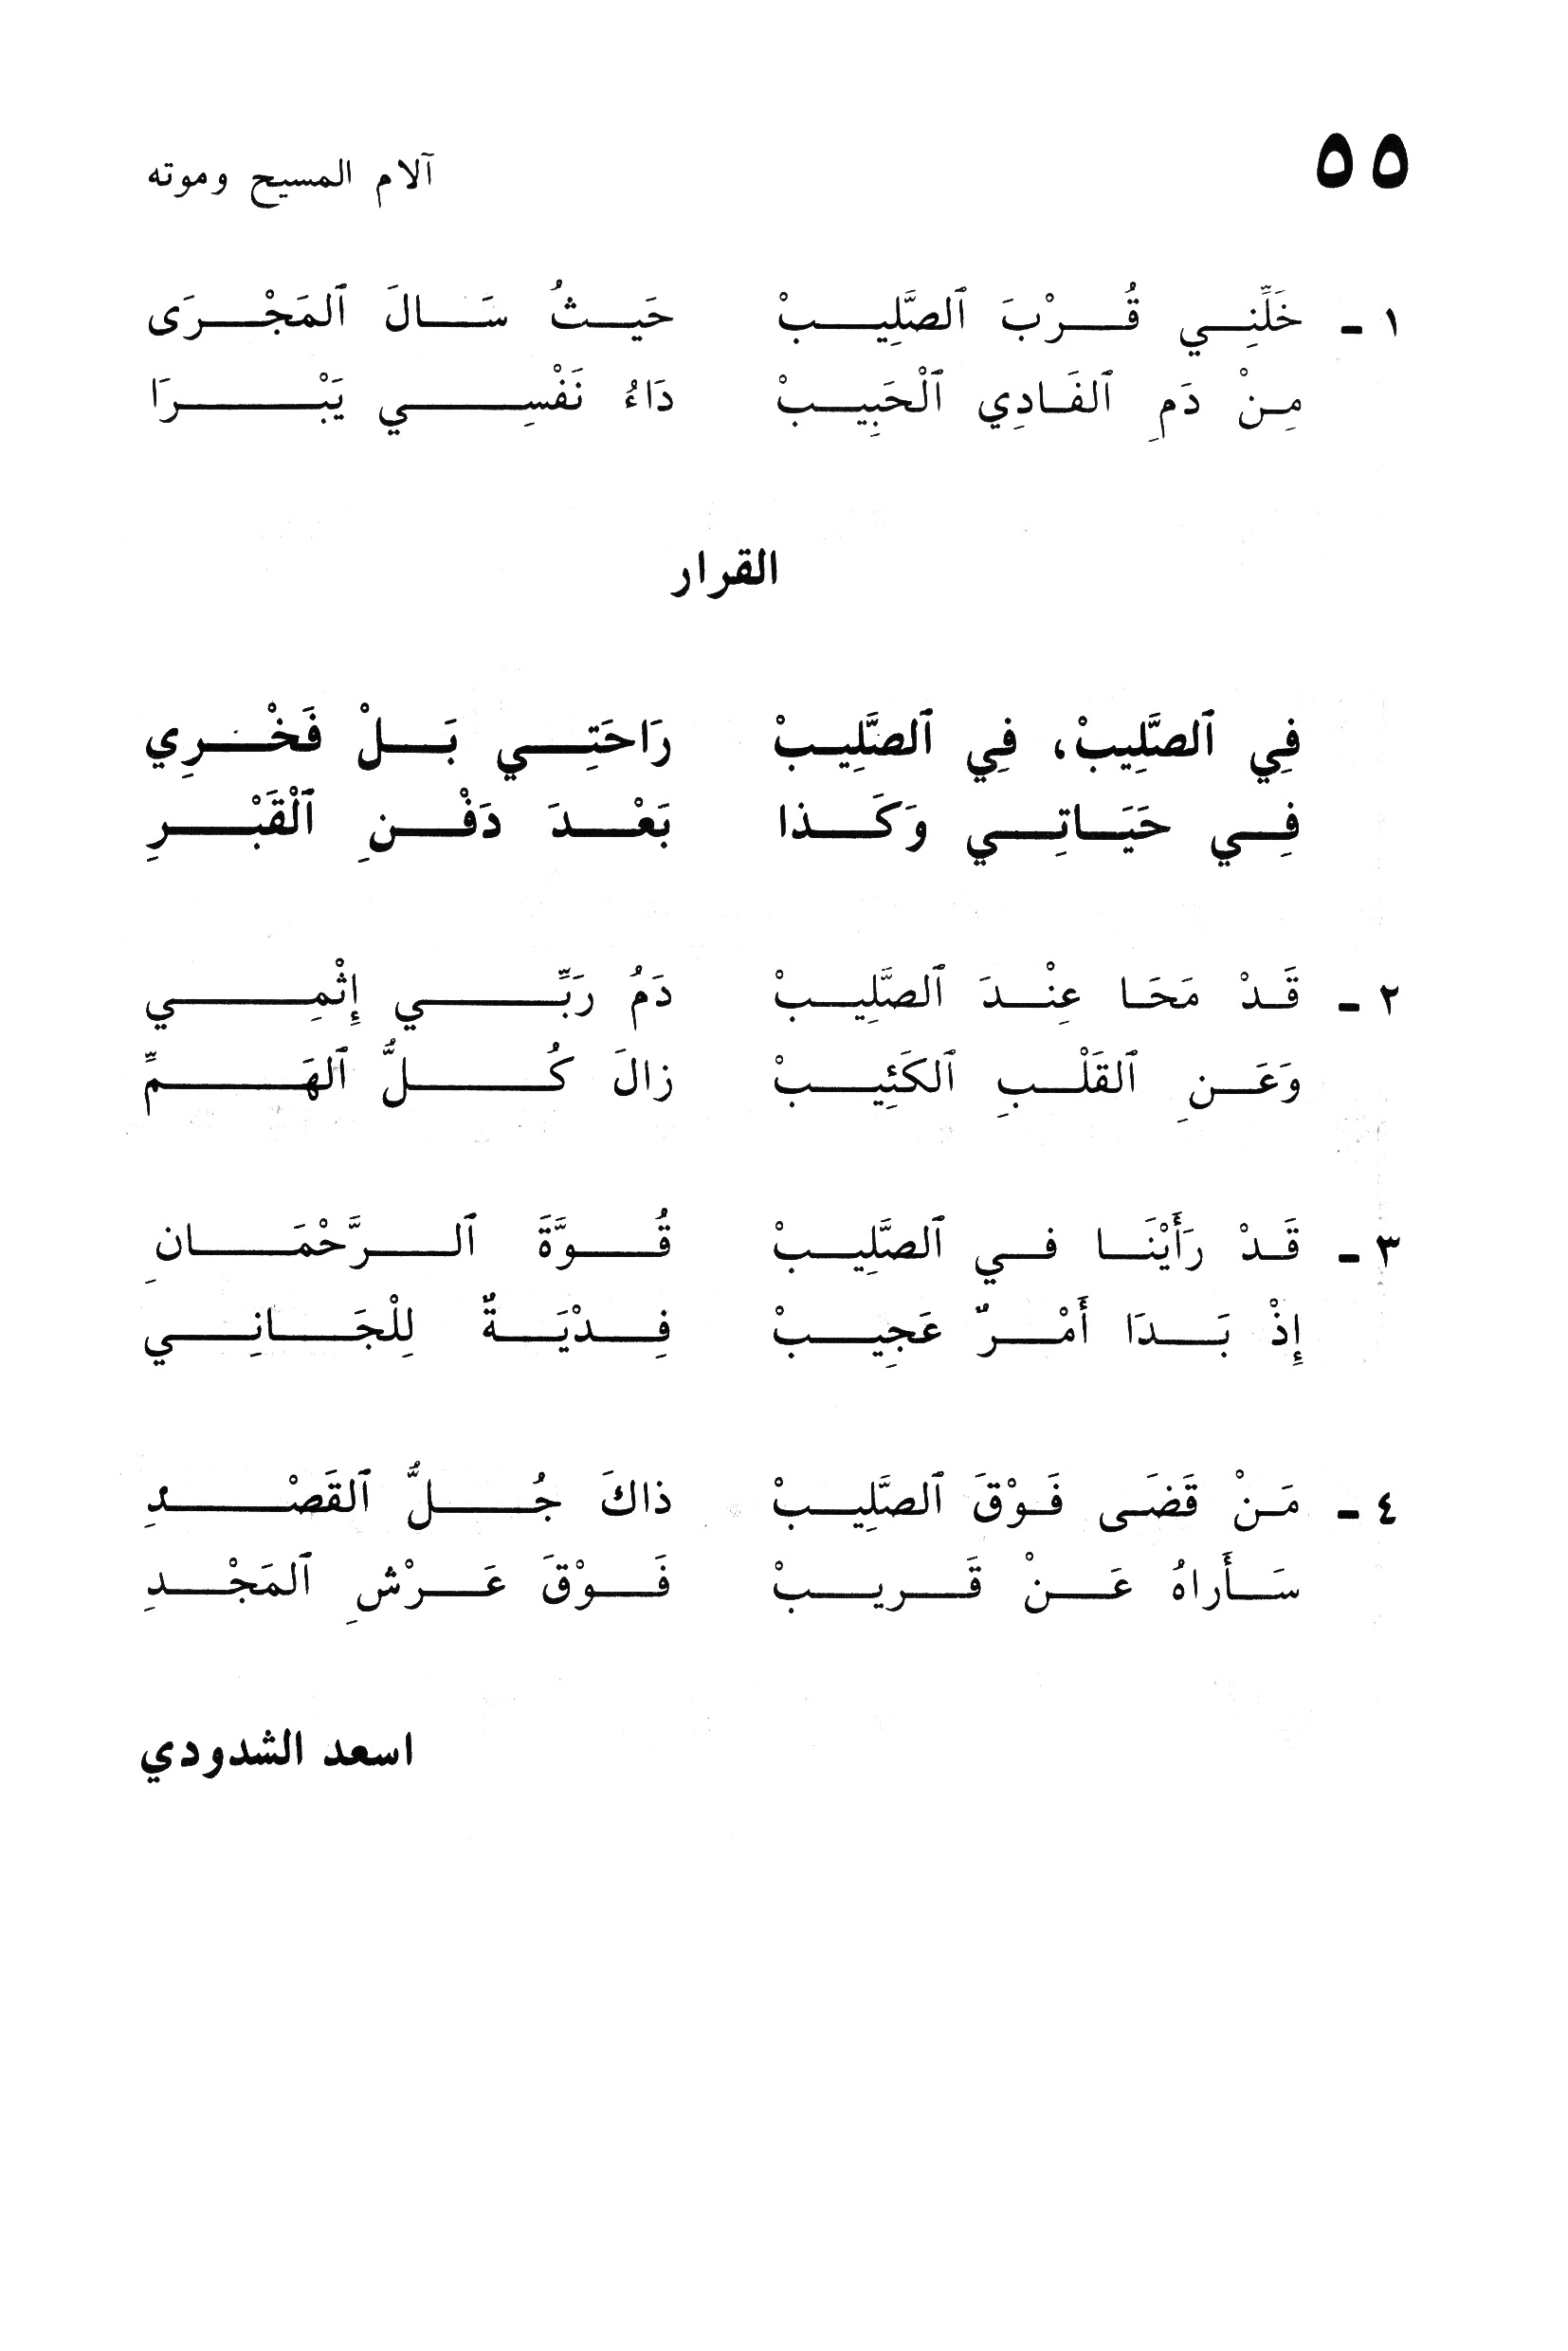 ٥٥ آلام المسيح وموته
١ - خَلِّنِي قُرْبَ ٱلصَّلِيبْ حَيثُ سَالَ ٱلمَجْرَى
مِنْ دَمِ ٱلفَادِي ٱلْحَبِيبْ دَاءُ نَفْسِي يَبْرَا
القرار
فِي ٱلصَّلِيبْ، فِي ٱلصَّلِيبْ رَاحَتِي بَلْ فَخْرِي
فِي حَيَاتِي وَكَذا بَعْدَ دَفْنِ ٱلْقَبْرِ
٢ - قَدْ مَحَا عِنْدَ ٱلصَّلِيبْ دَمُ رَبِّي إِثْمِي
وَعَنِ ٱلقَلْبِ ٱلكَئِيبْ زالَ كُلُّ ٱلهَمِّ
٣ - قَدْ رَأَيْنَا في ٱلصَّلِيبْ قُوَّةَ ٱلرَّحْمَانِ
إِذْ بَدَا أَمْرٌ عَجِيبْ فِدْيَةٌ لِلْجَانِي
٤ - مَنْ قَضَى فَوْقَ ٱلصَّلِيبْ ذاكَ جُلُّ ٱلقَصْدِ
سَأَراهُ عَنْ قَريبْ فَوْقَ عَرْشِ ٱلمَجْدِ
اسعد الشدودي